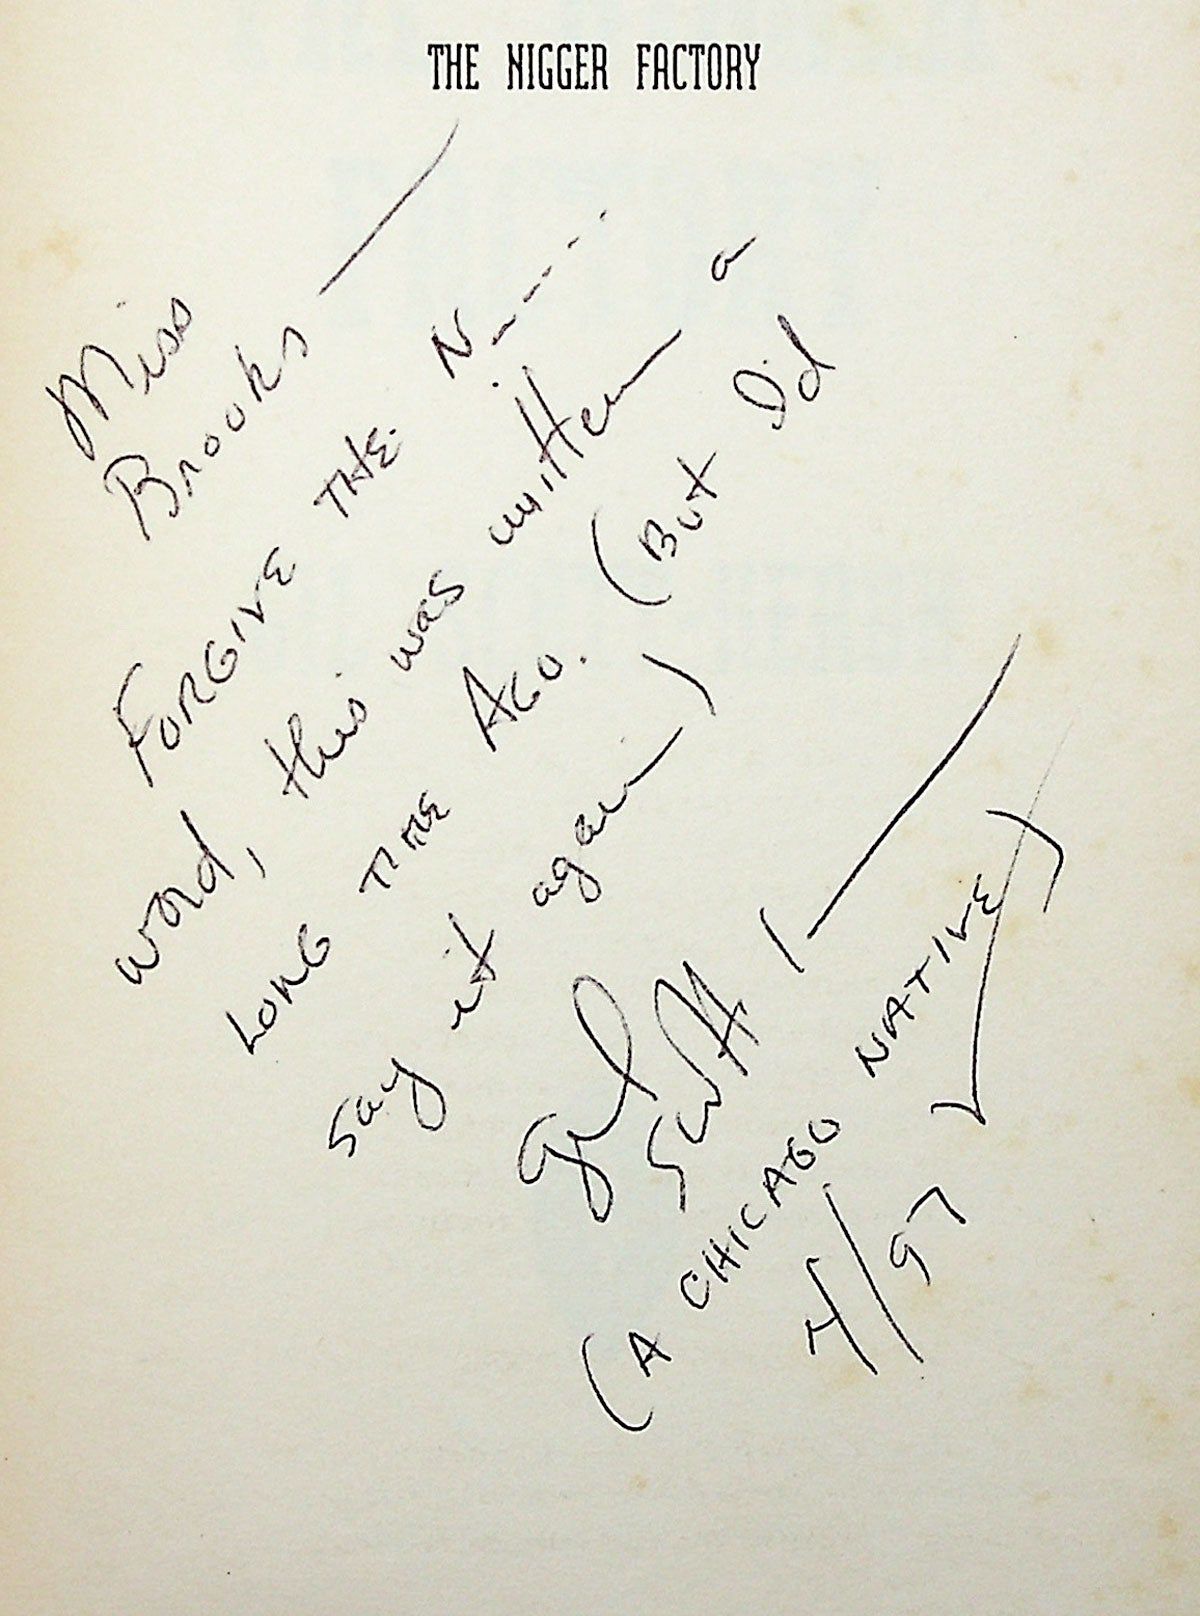 THE NIGGER FACTORY
Miss
Brooks —
FORGIVE THE N----
word, this was written a
LONG TIME AGO. (But I'd
say it again)
Gil
Scott
(A CHICAGO NATIVE)
4/97